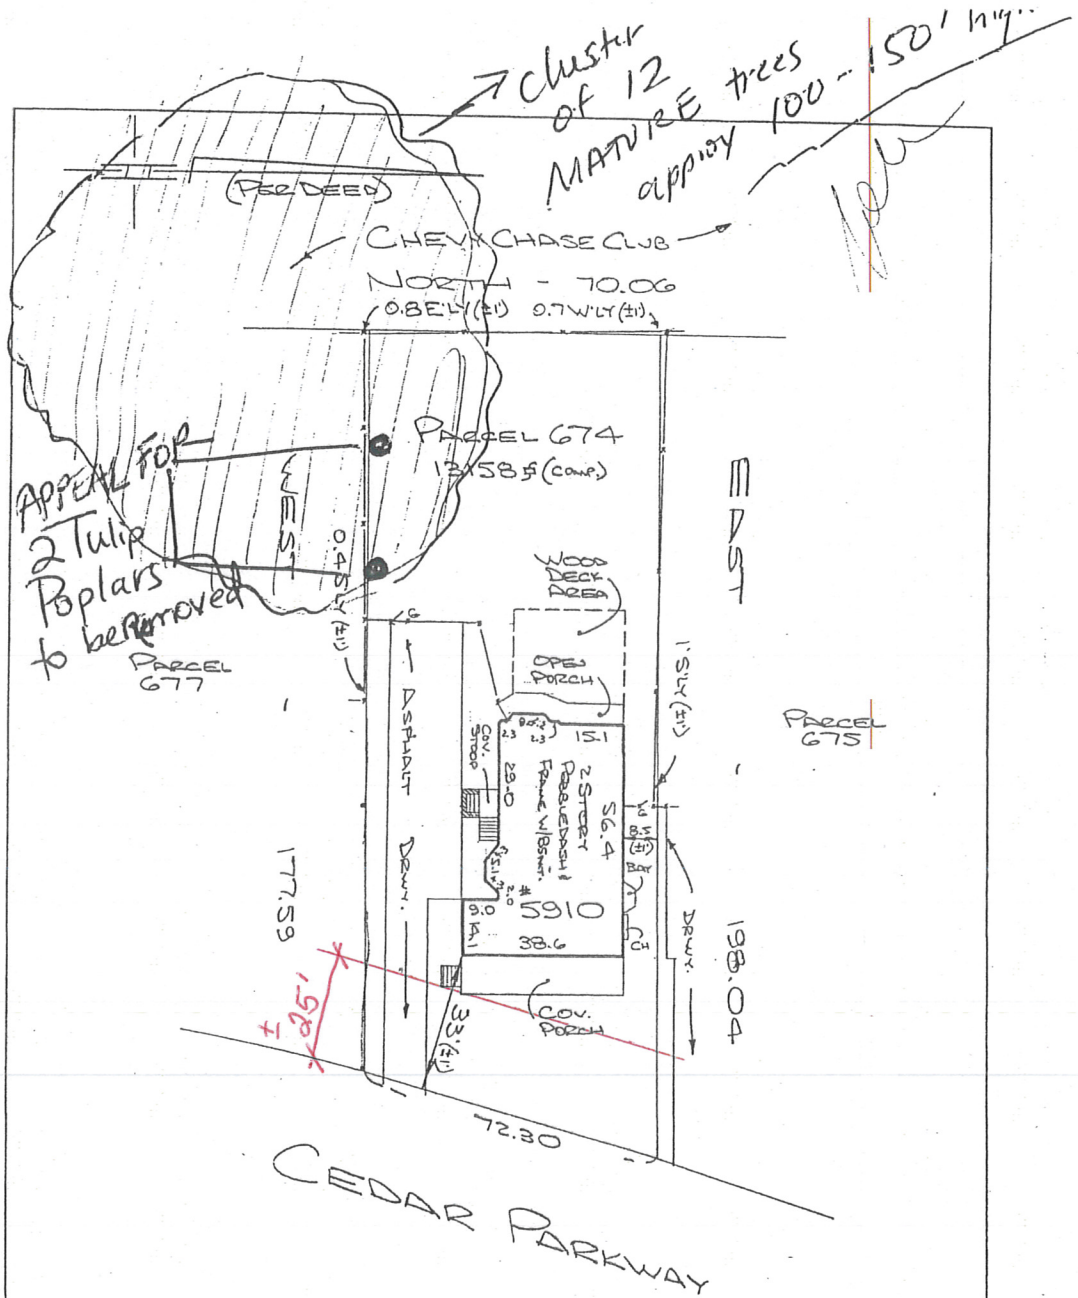 cluster
of 12
MATURE trees
approx 100 - 150' high
(PER DEED)
CHEVY CHASE CLUB
NORTH - 70.06
0.8 E'LY (±1') 0.7 W'LY (±1')
PARCEL 674
13158 (COMP.)
APPEAL FOR
2 Tulip
Poplars
to be Removed
WEST
EAST
0.4 S'LY (±1')
WOOD
DECK
AREA
OPEN
PORCH
PARCEL
677
1'S'LY (±1')
PARCEL
675
G
ASPHALT DRWY.
COV.
STOOP
2.3
2.3
15.1
29.0
2 STORY
PEBBLEDASH &
FRAME W/BSMT.
56.4
8.5
(±1')
5.1
2.0
#
5910
9.0
14.1
38.6
DRWY.
177.59
198.04
± 25'
33' (±1')
COV.
PORCH
72.30
CEDAR PARKWAY